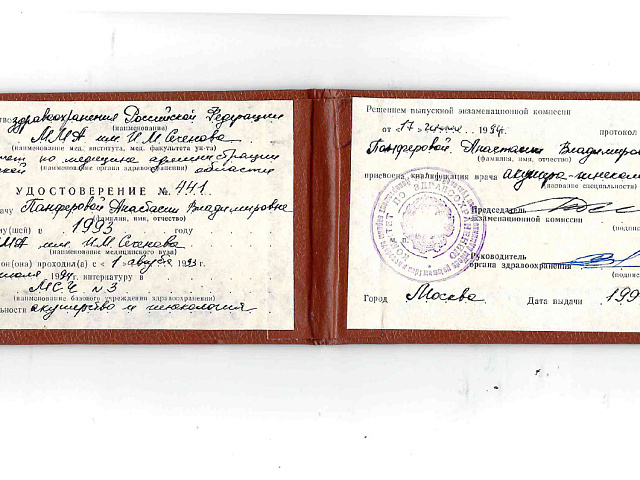 здравоохранения Российской Федерации
(наименование)
ММА им. И.М. Сеченова
(наименование мед. института, мед. факультета ун-та)
по медицине администрации
(наименование органа здравоохранения) области
УДОСТОВЕРЕНИЕ № 441
Панферовой Анастасии Владимировне
(фамилия, имя, отчество)
в 1993 году
ММА им. И.М. Сеченова
(наименование медицинского вуза)
он(она) проходил(а) с « 1 » августа 1993 г.
1994г. интернатуру в
МСЧ №3
(наименование базового учреждения здравоохранения)
акушерство и гинекология
Решением выпускной экзаменационной комиссии
от « 17 » 1994г. протокол
Панферовой Анастасии Владимиров
(фамилия, имя, отчество)
присвоена квалификация врача акушера-гинеколо
(название специальности)
Председатель
экзаменационной комиссии
(подпис
м. п.
Руководитель
органа здравоохранения
(подпис
Город Москва Дата выдачи 199